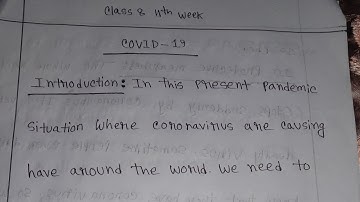 Class 8 11th week
COVID-19
Introduction: In this present pandemic
situation where coronavirus are causing
have around the world. We need to